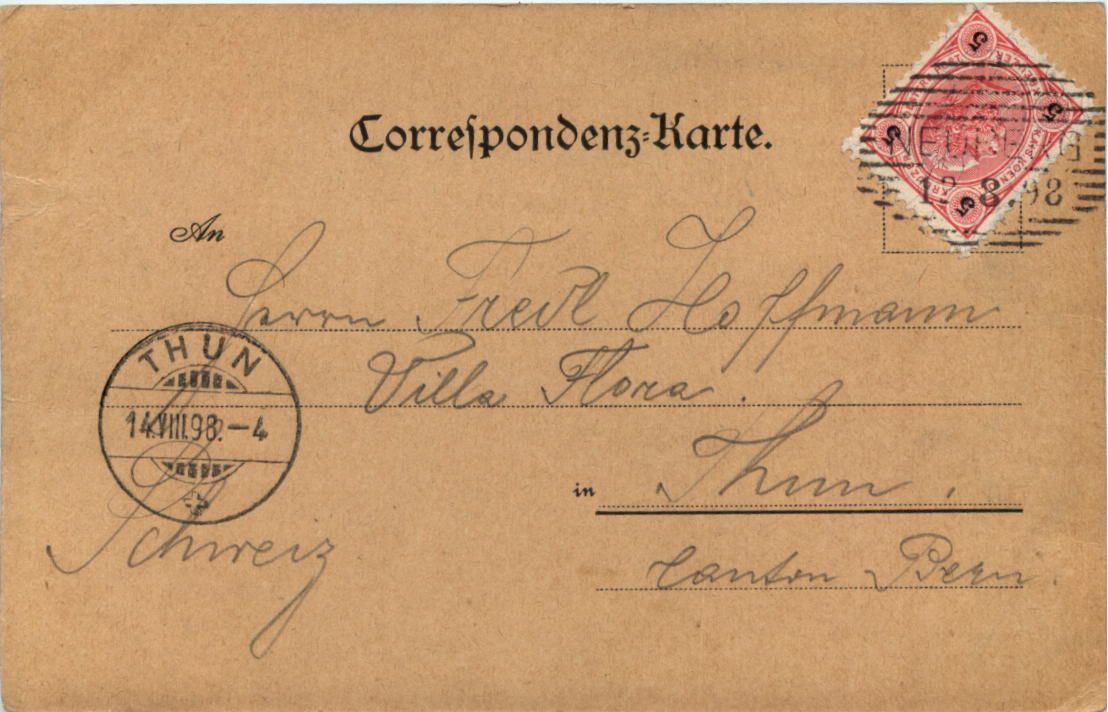 Correſpondenz-Karte.
5 5 5 5
12 8.98
An
Herrn Fredl Hoffmann
Villa Flora.
THUN
14.VIII.98.-4
in Thun.
Schweiz
Canton Bern.